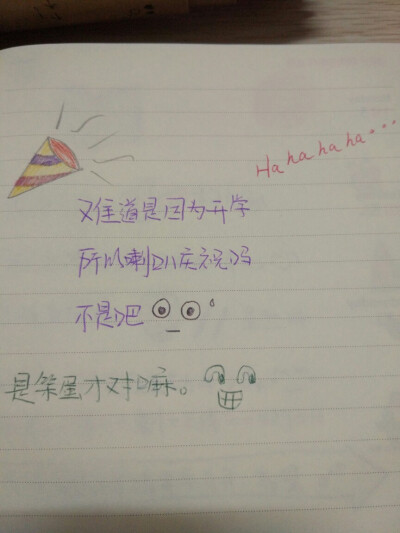 Ha ha ha ha...
难道是因为开学
所以喇叭庆祝吗
不是吧
是笨屋才对嘛。